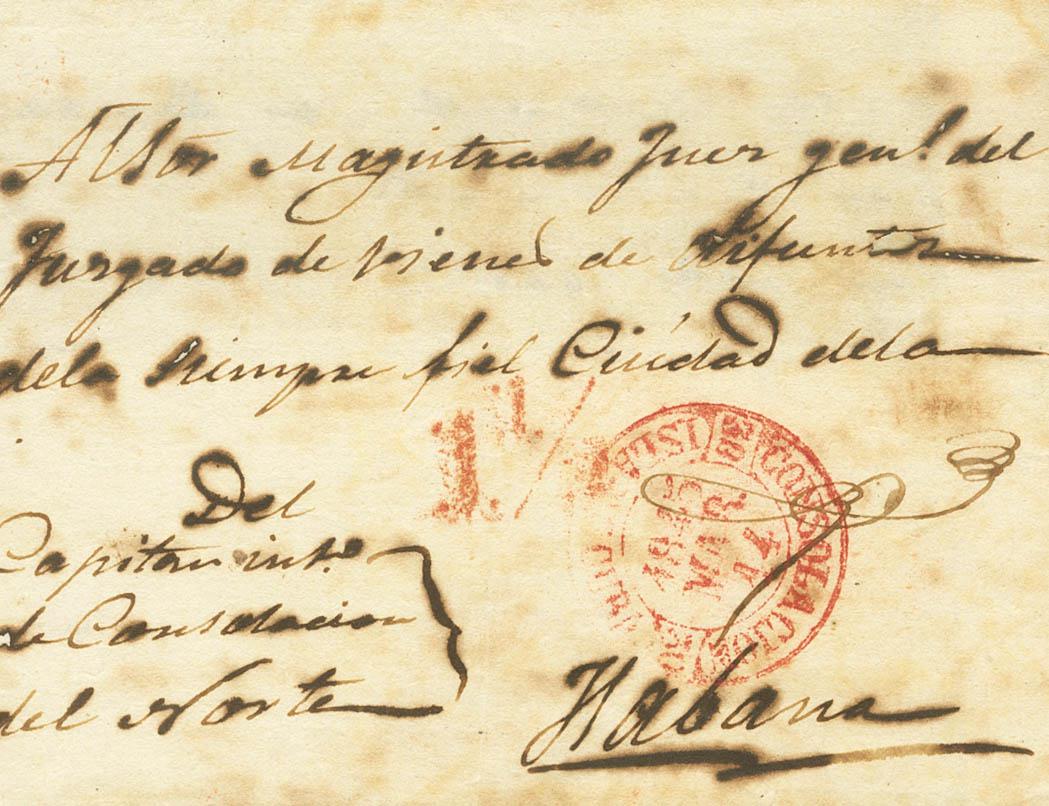 Al Sōr Magistrado Juez gen.l del
Juzgado de bienes de Difuntos
dela Siempre fiel Ciudad dela
Habana
Del
Capitan int.o
de Consolacion
del Norte
1
CONSOLACION
MAR
14